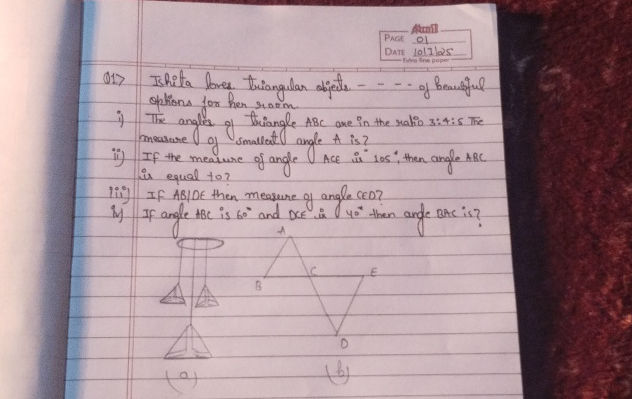 PAGE 01
DATE 10/7/25
Extra fine paper
Q1> Ishita loves triangular objects - - - - of beautiful
options for her room.
i) The angles of triangle ABC are in the ratio 3:4:5 The
measure of smallest angle A is?
ii) If the measure of angle ACE is 105°, then angle ABC
is equal to?
iii) If AB|DE then measure of angle CED?
iv) If angle ABC is 60° and DCE is 40° then angle BAC is?
A
B C E
D
(a) (b)